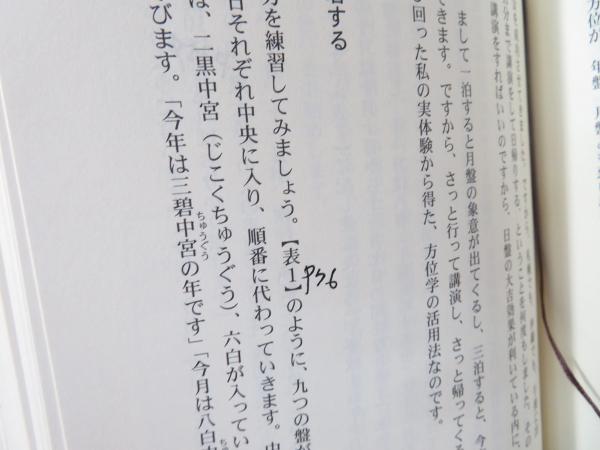 方位が、年盤、月盤
講演をすればいいのですから、日盤の大吉効果が利いている内に、
分まで講演をして日帰りする、ということを何度もしました。その
まして一泊すると月盤の象意が出てくるし、三泊すると、今
できます。ですから、さっと行って講演し、さっと帰ってくる
回った私の実体験から得た、方位学の活用法なのです。
する
方を練習してみましょう。【表1】のように、九つの盤が
P36
日それぞれ中央に入り、順番に代わっていきます。中
は、二黒中宮（じこくちゅうぐう）、六白が入ってい
びます。「今年は三碧中宮の年です」「今月は八白
ちゅうぐう